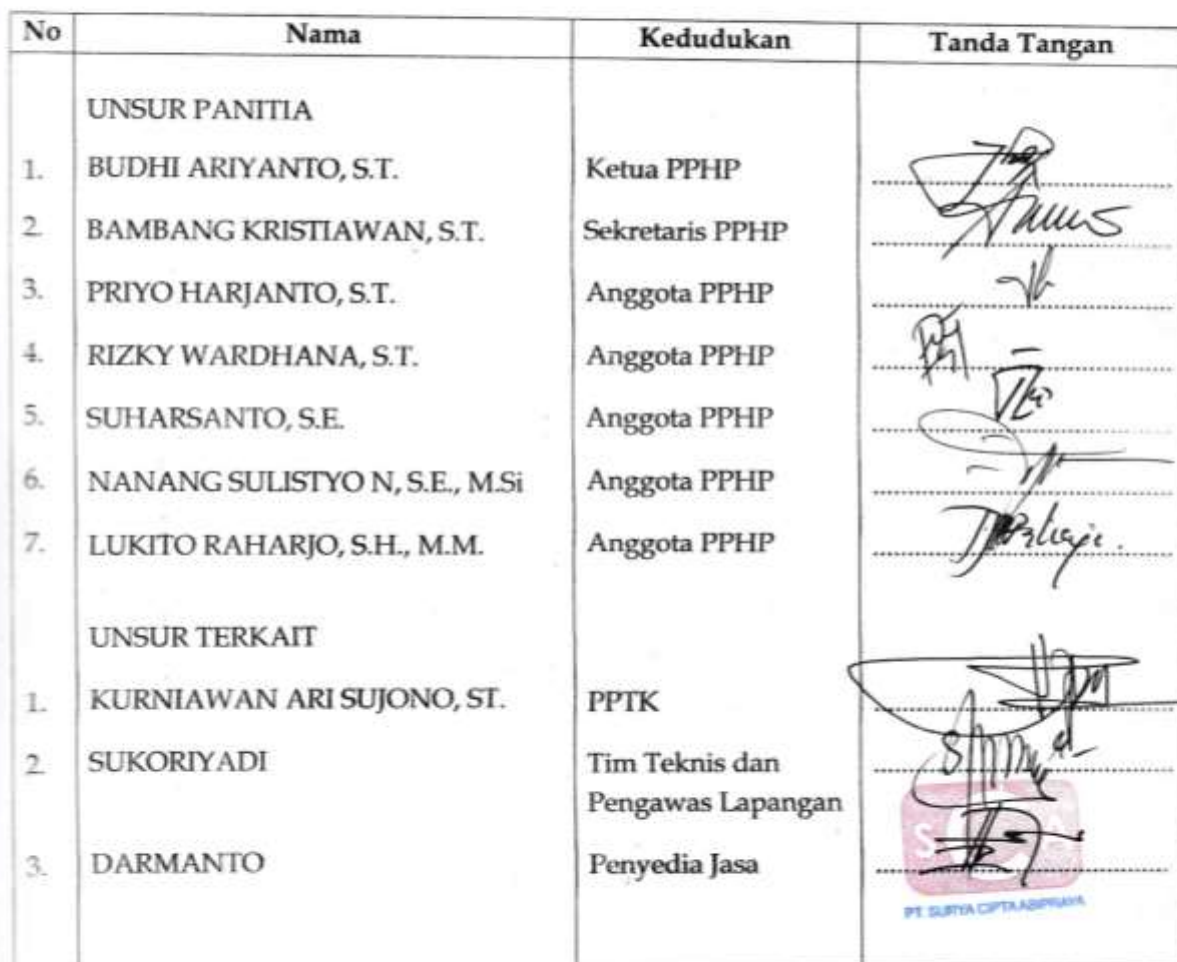 No Nama Kedudukan Tanda Tangan
UNSUR PANITIA
1. BUDHI ARIYANTO, S.T. Ketua PPHP
2. BAMBANG KRISTIAWAN, S.T. Sekretaris PPHP
3. PRIYO HARJANTO, S.T. Anggota PPHP
4. RIZKY WARDHANA, S.T. Anggota PPHP
5. SUHARSANTO, S.E. Anggota PPHP
6. NANANG SULISTYO N, S.E., M.Si Anggota PPHP
7. LUKITO RAHARJO, S.H., M.M. Anggota PPHP
UNSUR TERKAIT
1. KURNIAWAN ARI SUJONO, ST. PPTK
2. SUKORIYADI Tim Teknis dan
Pengawas Lapangan
3. DARMANTO Penyedia Jasa
S C A
PT. SURYA CIPTA ABIPRAYA